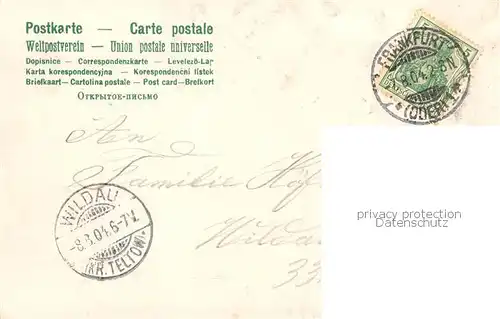 Postkarte — Carte postale
Weltpostverein — Union postale universelle
Dopisnice — Correspondenzkarte — Levelező-Lap
Karta korespondencyjna — Korespondenční lístek
Briefkaart — Cartolina postale — Post card — Brefkort
Открытое-письмо
FRANKFURT
8.04.7-8N
(ODER)
5
An
Familie
Wildau
33
privacy protection
Datenschutz
WILDAU
-8.8.04.6-7V.
(KR.TELTOW)